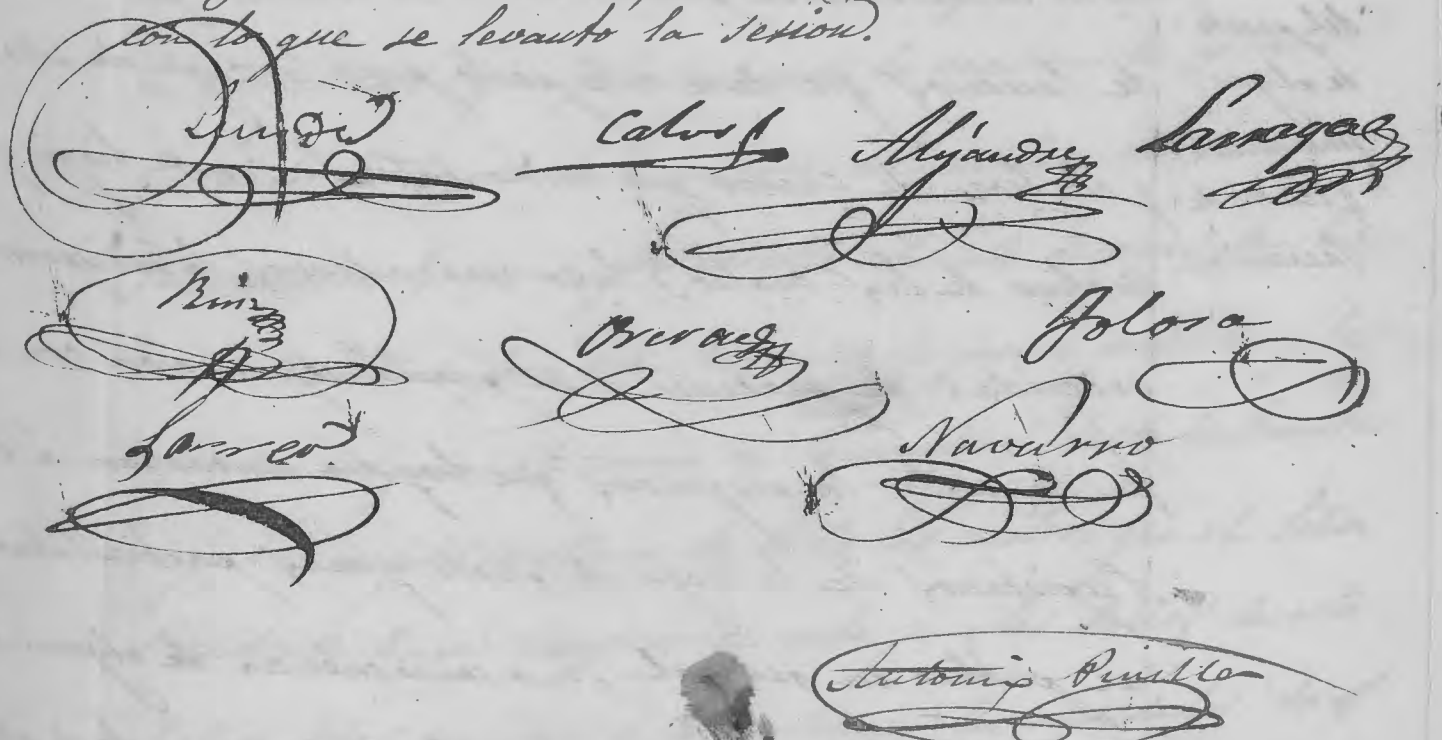 con lo que se levantó la sesion.
Calvo Alijandre Larraga
Ruiz Tolosa
Navarro
Antonio Pinilla